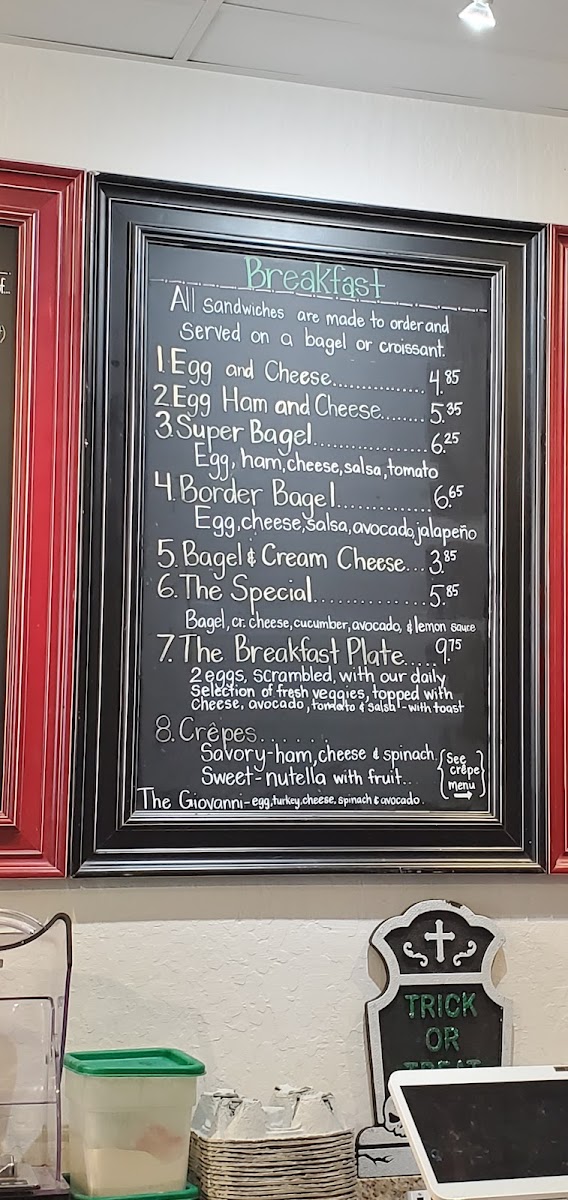 Breakfast
All sandwiches are made to order and
served on a bagel or croissant.
1. Egg and Cheese.............. 4.85
2. Egg Ham and Cheese....... 5.35
3. Super Bagel.................. 6.25
Egg, ham, cheese, salsa, tomato
4. Border Bagel.............. 6.65
Egg, cheese, salsa, avocado, jalapeño
5. Bagel & Cream Cheese... 3.85
6. The Special.................. 5.85
Bagel, cr. cheese, cucumber, avocado, & lemon sauce
7. The Breakfast Plate..... 9.75
2 eggs, scrambled, with our daily
selection of fresh veggies, topped with
cheese, avocado, tomato & salsa - with toast
8. Crêpes......
Savory-ham, cheese & spinach.
Sweet-nutella with fruit...
{See
crêpe
menu}
The Giovanni-egg, turkey, cheese, spinach & avocado.
TRICK
OR
TREAT